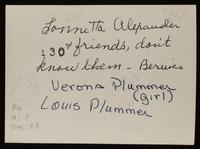 Lonnetta Alexander
130 & friends, don't
know them - Bernice
Verona Plummer
(girl)
Louis Plummer